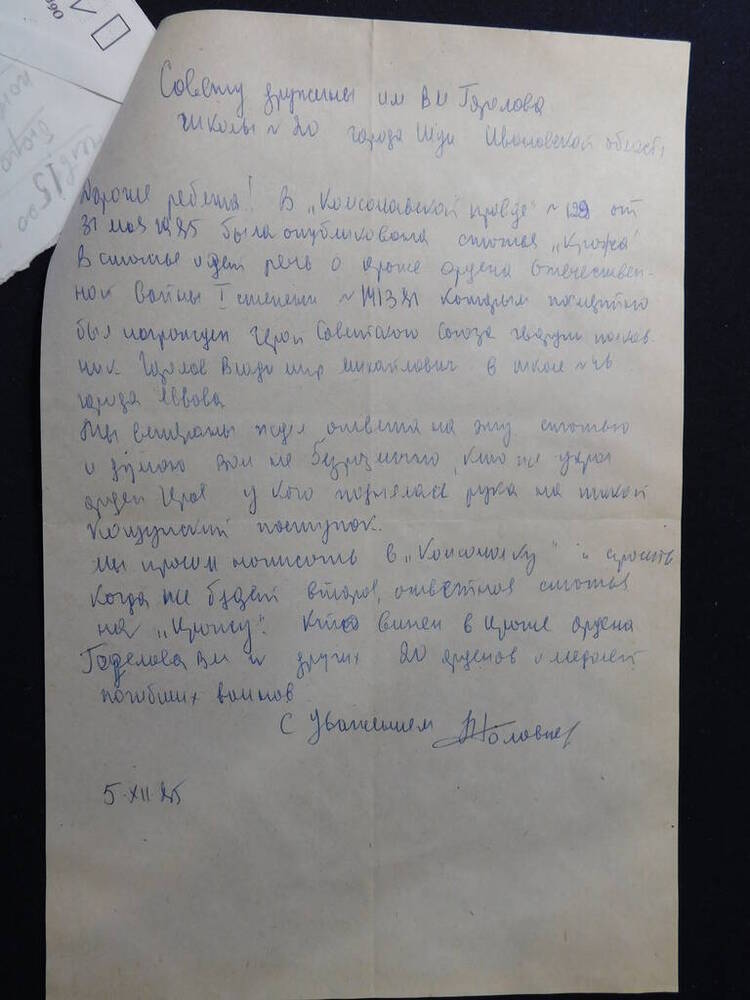 Совету дружины им ВМ Горелова
школы № 20 города Шуи Ивановской области
Дорогие ребята! В „Комсомольской правде" № 129 от
31 мая 1985 была опубликована статья „Кража"
В статье идет речь о краже ордена Отечествен-
ной Войны I степени № 141381 которым посмертно
был награжден Герой Советского Союза гвардии полков
ник Горелов Владимир Михайлович в школе № 46
города Львова
Мы ветераны ждем ответа на эту статью
и думаю вам не безразлично, кто же украл
орден Героя у кого поднялась рука на такой
кощунский поступок.
Мы просим написать в „Комсомолку" и спросить
когда же будет вторая, ответная статья
на „Кражу". Кто винен в краже ордена
Горелова ВМ и других 20 орденов и медалей
погибших воинов
С уважением
5.XII.85